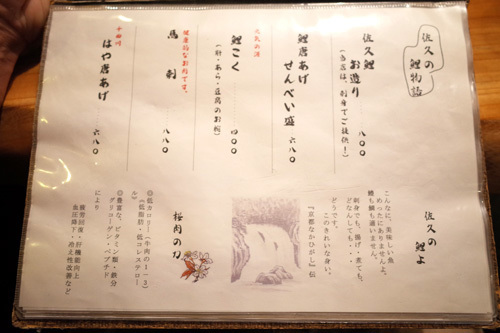 佐久の
鯉物語
佐久鯉
お造り
八〇〇
(当店は、刺身でご提供!)
鯉唐あげ
せんべい盛
六八〇
元気の源
鯉こく
四〇〇
(肝・あら・豆腐のお椀)
健康的なお肉です。
馬刺
八八〇
千曲川
はや唐あげ
六八〇
佐久の
鯉よ
こんなに、美味しい魚
めったにおまへんよ。
鱧も鯛も適いません。
刺身でも、揚げ・煮ても、
どなんしても・・・
このきれいな身い。
どうです。
『京都なかひがし』伝
桜肉の力
◎低カロリー(牛肉の1-3)
(低脂肪・低コレステロー
ル)
◎豊富な、ビタミン類・鉄分
グリコーゲン・ペプチド
により
疲労回復・肝機能向上
血圧降下・冷え性改善など